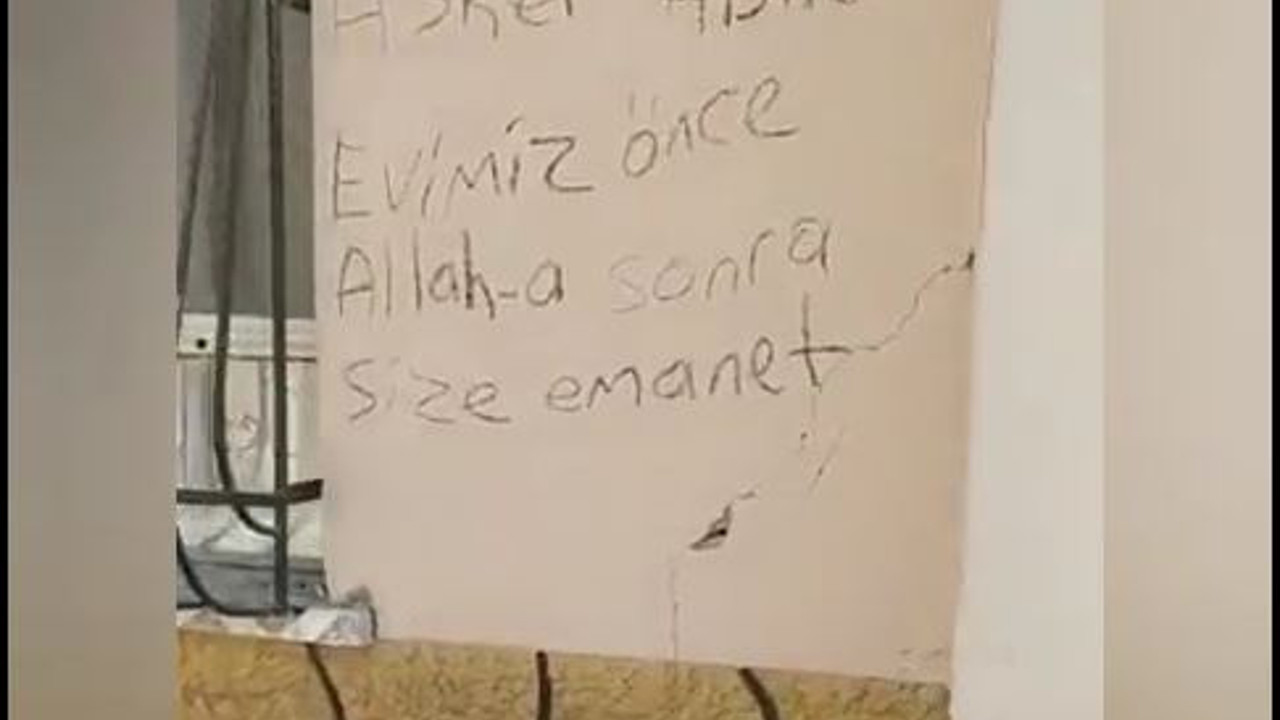 Asker Abi
Evimiz önce
Allah-a sonra
size emanet